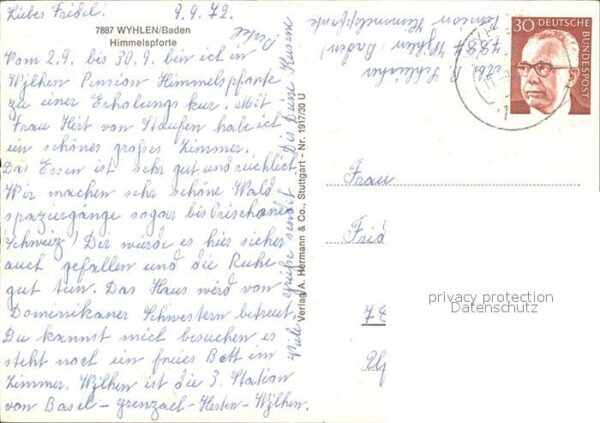 Lieber Fridel! 9.9.72.
7887 WYHLEN/Baden
Himmelspforte
Vom 2.9. bis 30.9. bin ich in
Wÿhlen Pension Himmelspforte
zu einer Erholungskur. Mit
Frau Hert von Staufen habe ich
ein schönes großes Zimmer.
Das Essen ist sehr gut und reichlich.
Wir machen sehr schöne Wald
spaziergänge sogar bis Crischona
Schweiz! Der würde es hier sicher
auch gefallen und die Ruhe
gut tun. Das Haus wird von
Dominikaner Schwestern betreut.
Du kannst mich besuchen es
steht noch ein freies Bett im
Zimmer. Wÿhlen ist die 3. Station
von Basel – Grenzach – Herten – Wÿhlen.
Viele Grüße sendet Dir Deine
Verlag A. Hermann & Co., Stuttgart - Nr. 1917/39 U
7887 Wÿhlen (Baden)
Pension Himmelspforte
30
DEUTSCHE
BUNDESPOST
Frau
Frid
privacy protection
Datenschutz